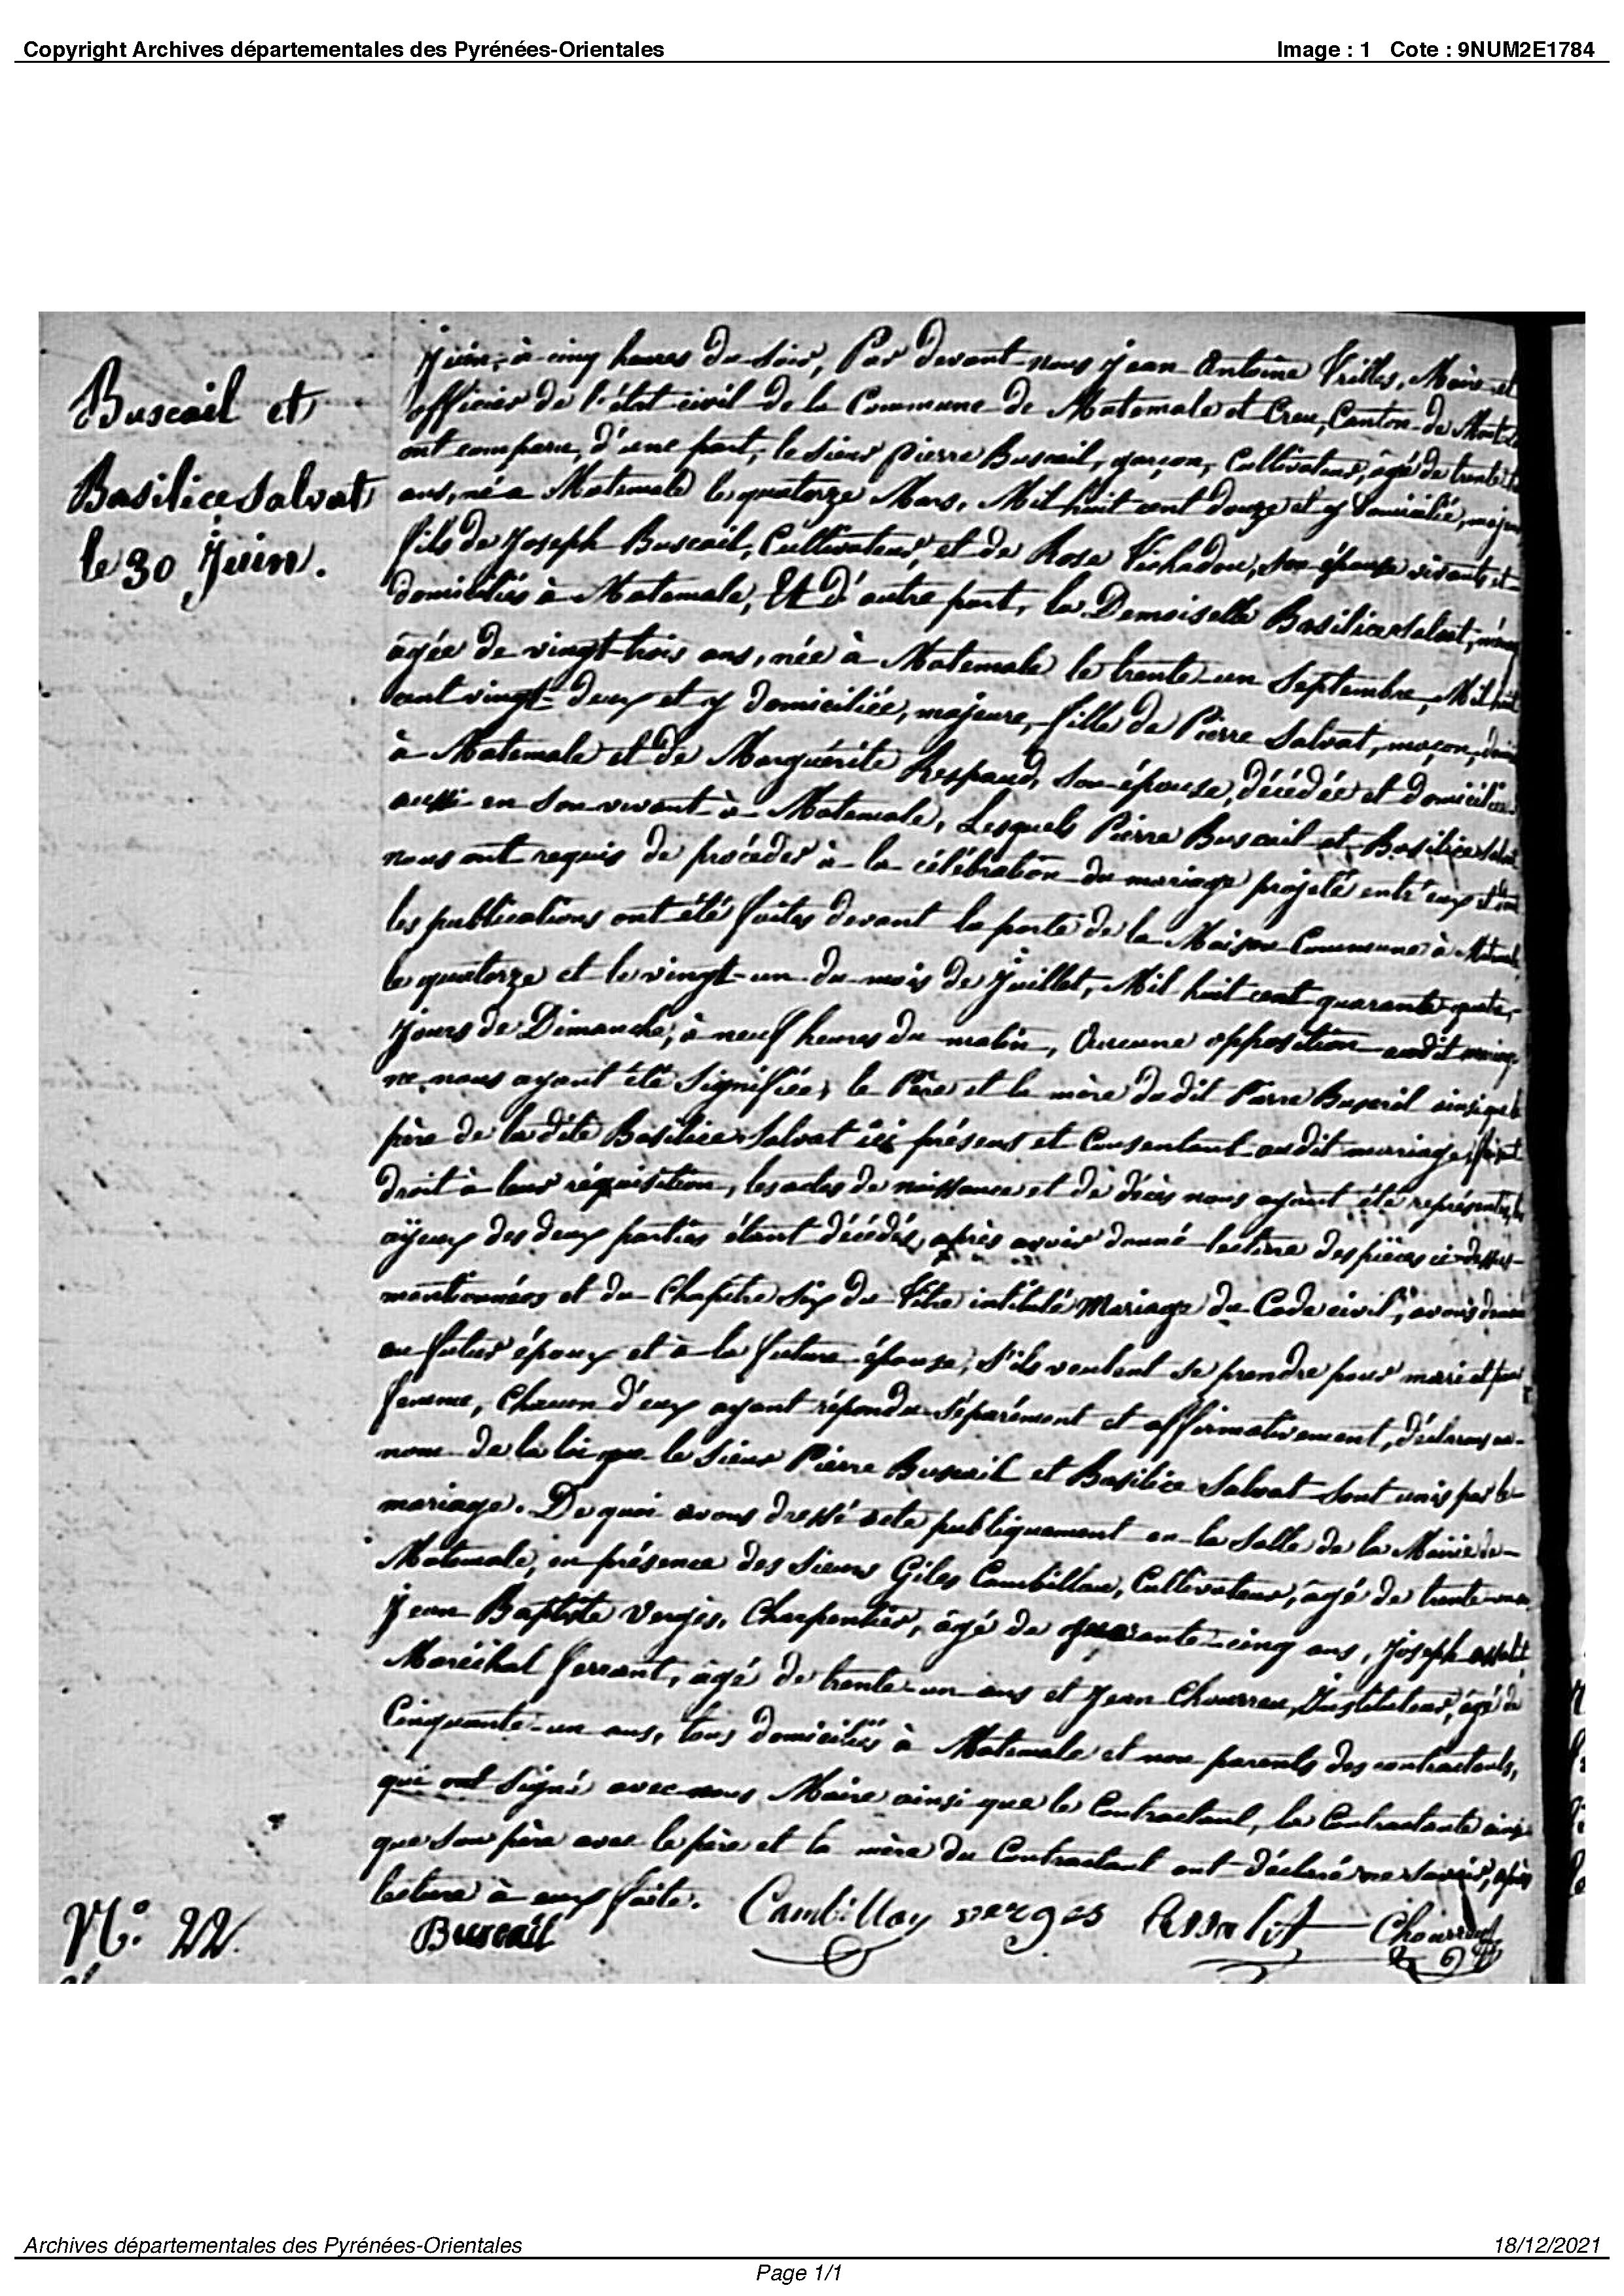 Copyright Archives départementales des Pyrénées-Orientales
Image : 1 Cote : 9NUM2E1784
Buscail et
Basilice Salvat
le 30 Juin.
Juin, à cinq heures du soir, Par devant nous Jean Antoine Vrilles, Maire et
officier de l'état civil de la Commune de Matemale et Creu, Canton de Mont
ont comparu, d'une part, le Sieur Pierre Buscail, garçon, Cultivateur, âgé de trente
ans, né a Matemale le quatorze Mars, Mil huit cent douze et y domicilié, majeur
fils de Joseph Buscail, Cultivateur, et de Rose Vichadou, son épouse vivants et
domiciliés à Matemale, Et d'autre part, la Demoiselle Basilice Salvat,
âgée de vingt-trois ans, née à Matemale le trente-un Septembre, Mil huit
cent vingt-deux et y domiciliée, majeure, fille de Pierre Salvat, maçon,
à Matemale et de Marguérite Respaud, son épouse, décédée et domiciliée
aussi en son vivant à Matemale, Lesquels Pierre Buscail et Basilice Salvat
nous ont requis de procéder à la célébration du mariage projeté entr'eux et dont
les publications ont été faites devant la porte de la Maison Commune à Matemale
le quatorze et le vingt-un du mois de Juillet, Mil huit cent quarante-quatre,
Jours de Dimanche, à neuf heures du matin, Aucune opposition audit mariage
ne nous ayant été signifiée, le Père et la mère dudit Pierre Buscail ainsi que le
père de la dite Basilice Salvat ici présens et Consentant audit mariage, faisant
droit à leur réquisition, les actes de naissance et de décès nous ayant été représentés, les
ayeux des deux parties étant décédés, après avoir donné lecture des pièces ci-dessus
mentionnées et du Chapitre Six du Titre intitulé Mariage du Code civil, avons demandé
au futur époux et à la future épouse, s'ils veulent se prendre pour mari et pour
femme, Chacun d'eux ayant répondu séparément et affirmativement, déclarons au
nom de la loi que le Sieur Pierre Buscail et Basilice Salvat sont unis par le
mariage. De quoi avons dressé acte publiquement en la Salle de la Mairie de
Matemale, en présence des Sieurs Giles Cambillau, Cultivateur, âgé de trente
Jean Baptiste Vergès, Charpentier, âgé de quarante-cinq ans, Joseph Assalit
Maréchal ferrant, âgé de trente-un ans et Jean Chourreu, Instituteur, âgé de
Cinquante-un ans, tous domiciliés à Matemale et non parents des contractants,
qui ont signé avec nous Maire ainsi que le Contractant, la Contractante ainsi
que son père avec le père et la mère du Contractant ont déclaré ne savoir, après
lecture à eux faite.
Buscail Cambillau verges Assalit Chourreu
N.° 22.
Archives départementales des Pyrénées-Orientales
18/12/2021
Page 1/1